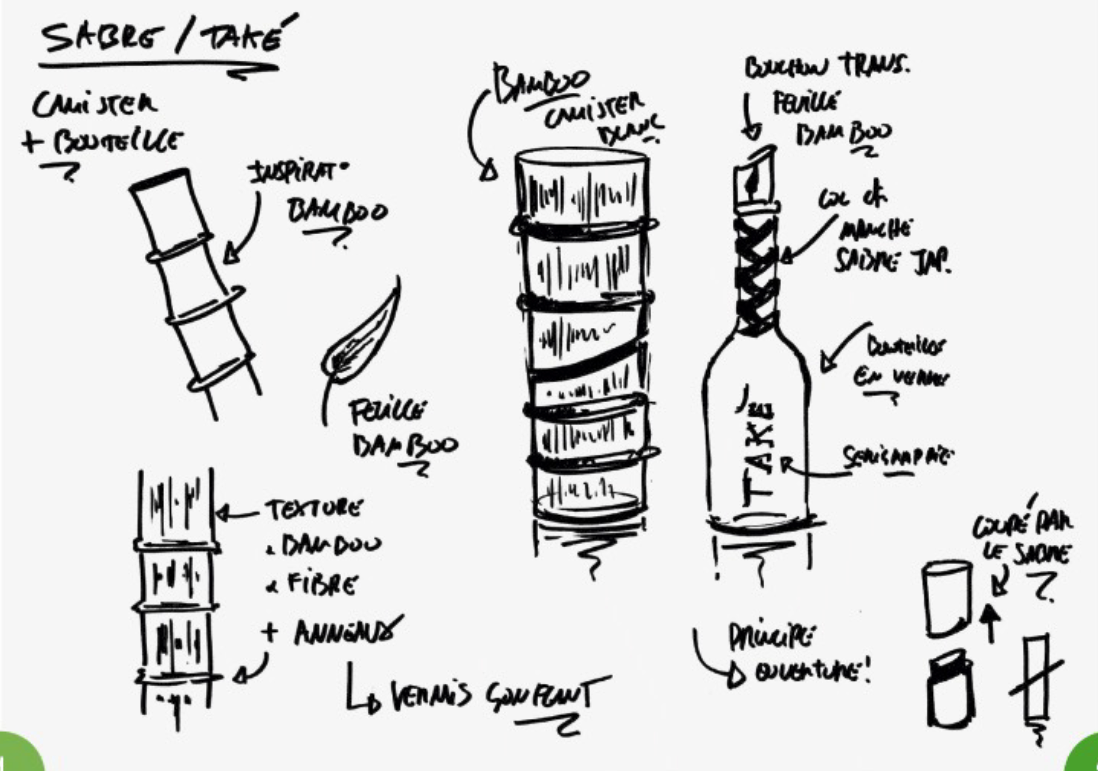 SABRE / TAKÉ
CANISTER
+ BOUTEILLE
INSPIRAT°
BAMBOO
FEUILLE
BAMBOO
TEXTURE
• BAMBOO
• FIBRE
+ ANNEAUX
↳ VERNIS GONFLANT
BAMBOO
CANISTER
BLANC
BOUCHON TRANS.
FEUILLE
BAMBOO
MANCHE
SABRE JAP.
BOUTEILLE
EN VERRE
TAKÉ
SERIGRAPHIE
PRINCIPE
OUVERTURE!
COUPÉ PAR
LE SABRE